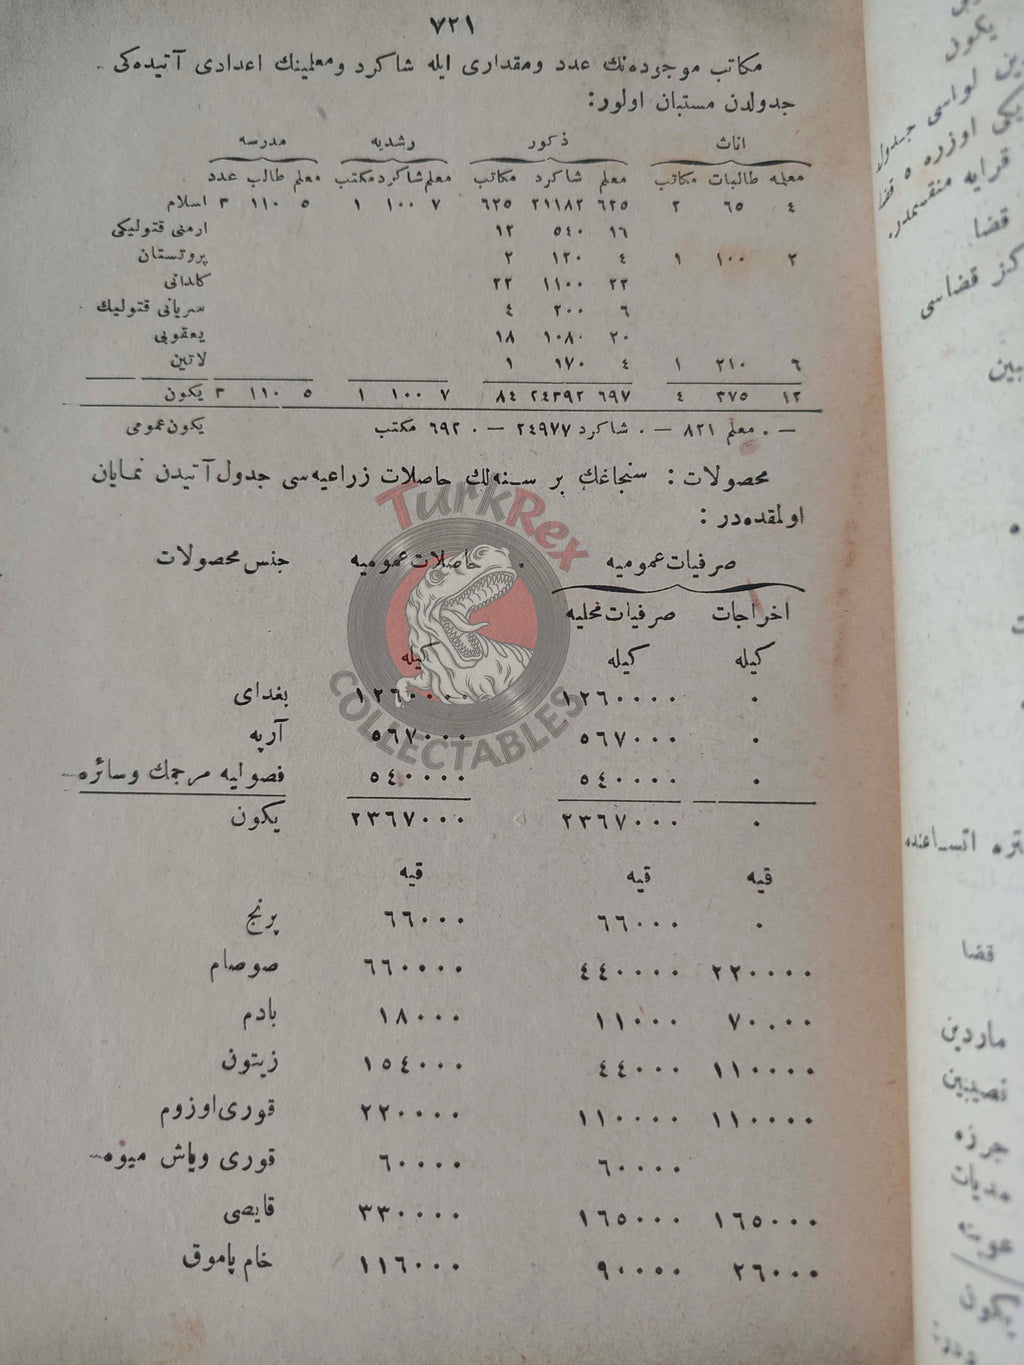 ٧٢١
مكاتب موجوده‌نك عدد ومقداری ایله شاكرد ومعلمینك اعدادی آتیده‌كی
جدولدن مستبان اولور:
اناث ذكور رشدیه مدرسه
معلمه طالبات مكاتب معلم شاكرد مكاتب معلم شاكرد مكتب معلم طالب عدد
٤ ٦٥ ٢ ٦٢٥ ٢١١٨٢ ٦٢٥ ٧ ١٠٠ ١ ٥ ١١٠ ٣ اسلام
١٦ ٥٤٠ ١٢ ارمنی قتولیكی
٢ ١٠٠ ١ ٤ ١٢٠ ٢ پروتستان
٢٢ ١١٠٠ ٢٢ كلدانی
٦ ٢٠٠ ٤ سریانی قتولیك
٢٠ ١٠٨٠ ١٨ یعقوبی
٦ ٢١٠ ١ ٤ ١٧٠ ١ لاتین
١٢ ٣٧٥ ٤ ٦٩٧ ٢٤٣٩٢ ٨٤ ٧ ١٠٠ ١ ٥ ١١٠ ٣ یكون
— ٠ معلم ٨٢١ — ٠ شاكرد ٢٤٩٧٧ — ٠ ٦٩٢ مكتب یكون عمومی
محصولات : سنجاغك بر سنه‌لك حاصلات زراعیه‌سی جدول آتیدن نمایان
اولمقده‌در :
صرفیات عمومیه حاصلات عمومیه جنس محصولات
اخراجات صرفیات محلیه
كیله كیله كیله
٠ ١٢٦٠٠٠٠ ١٢٦٠٠٠٠ بغدای
٠ ٥٦٧٠٠٠ ٥٦٧٠٠٠ آرپه
٠ ٥٤٠٠٠٠ ٥٤٠٠٠٠ فصولیه مرجمك وسائره
٠ ٢٣٦٧٠٠٠ ٢٣٦٧٠٠٠ یكون
قیه قیه قیه
٠ ٦٦٠٠٠ ٦٦٠٠٠ پرنج
٢٢٠٠٠٠ ٤٤٠٠٠٠ ٦٦٠٠٠٠ صوصام
٧٠٠٠٠ ١١٠٠٠ ١٨٠٠٠ بادم
١١٠٠٠٠ ٤٤٠٠٠ ١٥٤٠٠٠ زیتون
١١٠٠٠٠ ١١٠٠٠٠ ٢٢٠٠٠٠ قوری اوزوم
٦٠٠٠٠ ٦٠٠٠٠ قوری ویاش میوه
١٦٥٠٠٠ ١٦٥٠٠٠ ٣٣٠٠٠٠ قایصی
٢٦٠٠٠ ٩٠٠٠٠ ١١٦٠٠٠ خام پاموق
TurkRex
COLLECTABLES
یكون
قضا
قضا
ماردین
نصیبین
جزره
مدیات
یكون